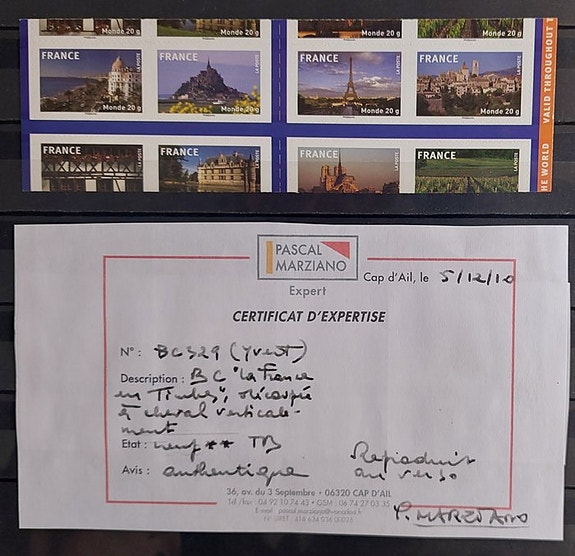 Monde 20 g Monde 20 g
FRANCE LA POSTE FRANCE LA POSTE FRANCE LA POSTE FRANCE LA POSTE
Monde 20 g Monde 20 g Monde 20 g Monde 20 g
FRANCE FRANCE LA POSTE FRANCE LA POSTE FRANCE LA POSTE
HE WORLD VALID THROUGHOUT T
PASCAL
MARZIANO
Expert
Cap d'Ail, le 5/12/10
CERTIFICAT D'EXPERTISE
N° : BC329 (Yvert)
Description : BC "la France
en Timbres", découpée
à cheval verticale-
ment
Etat : neuf ** TB
Avis : authentique
Reproduit
au verso
36, av. du 3 Septembre • 06320 CAP D'AIL
Tel /fax : 04 92 10 74 43 • GSM : 06 74 27 03 35
P. MARZIANO